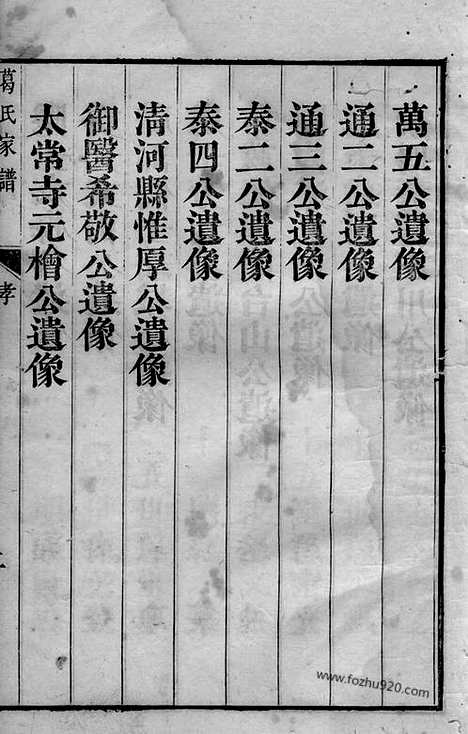 萬五公遺像
通二公遺像
通三公遺像
泰二公遺像
泰四公遺像
清河縣惟厚公遺像
御醫希敬公遺像
太常寺元檜公遺像
葛氏家譜
孝
www.fozhu920.com